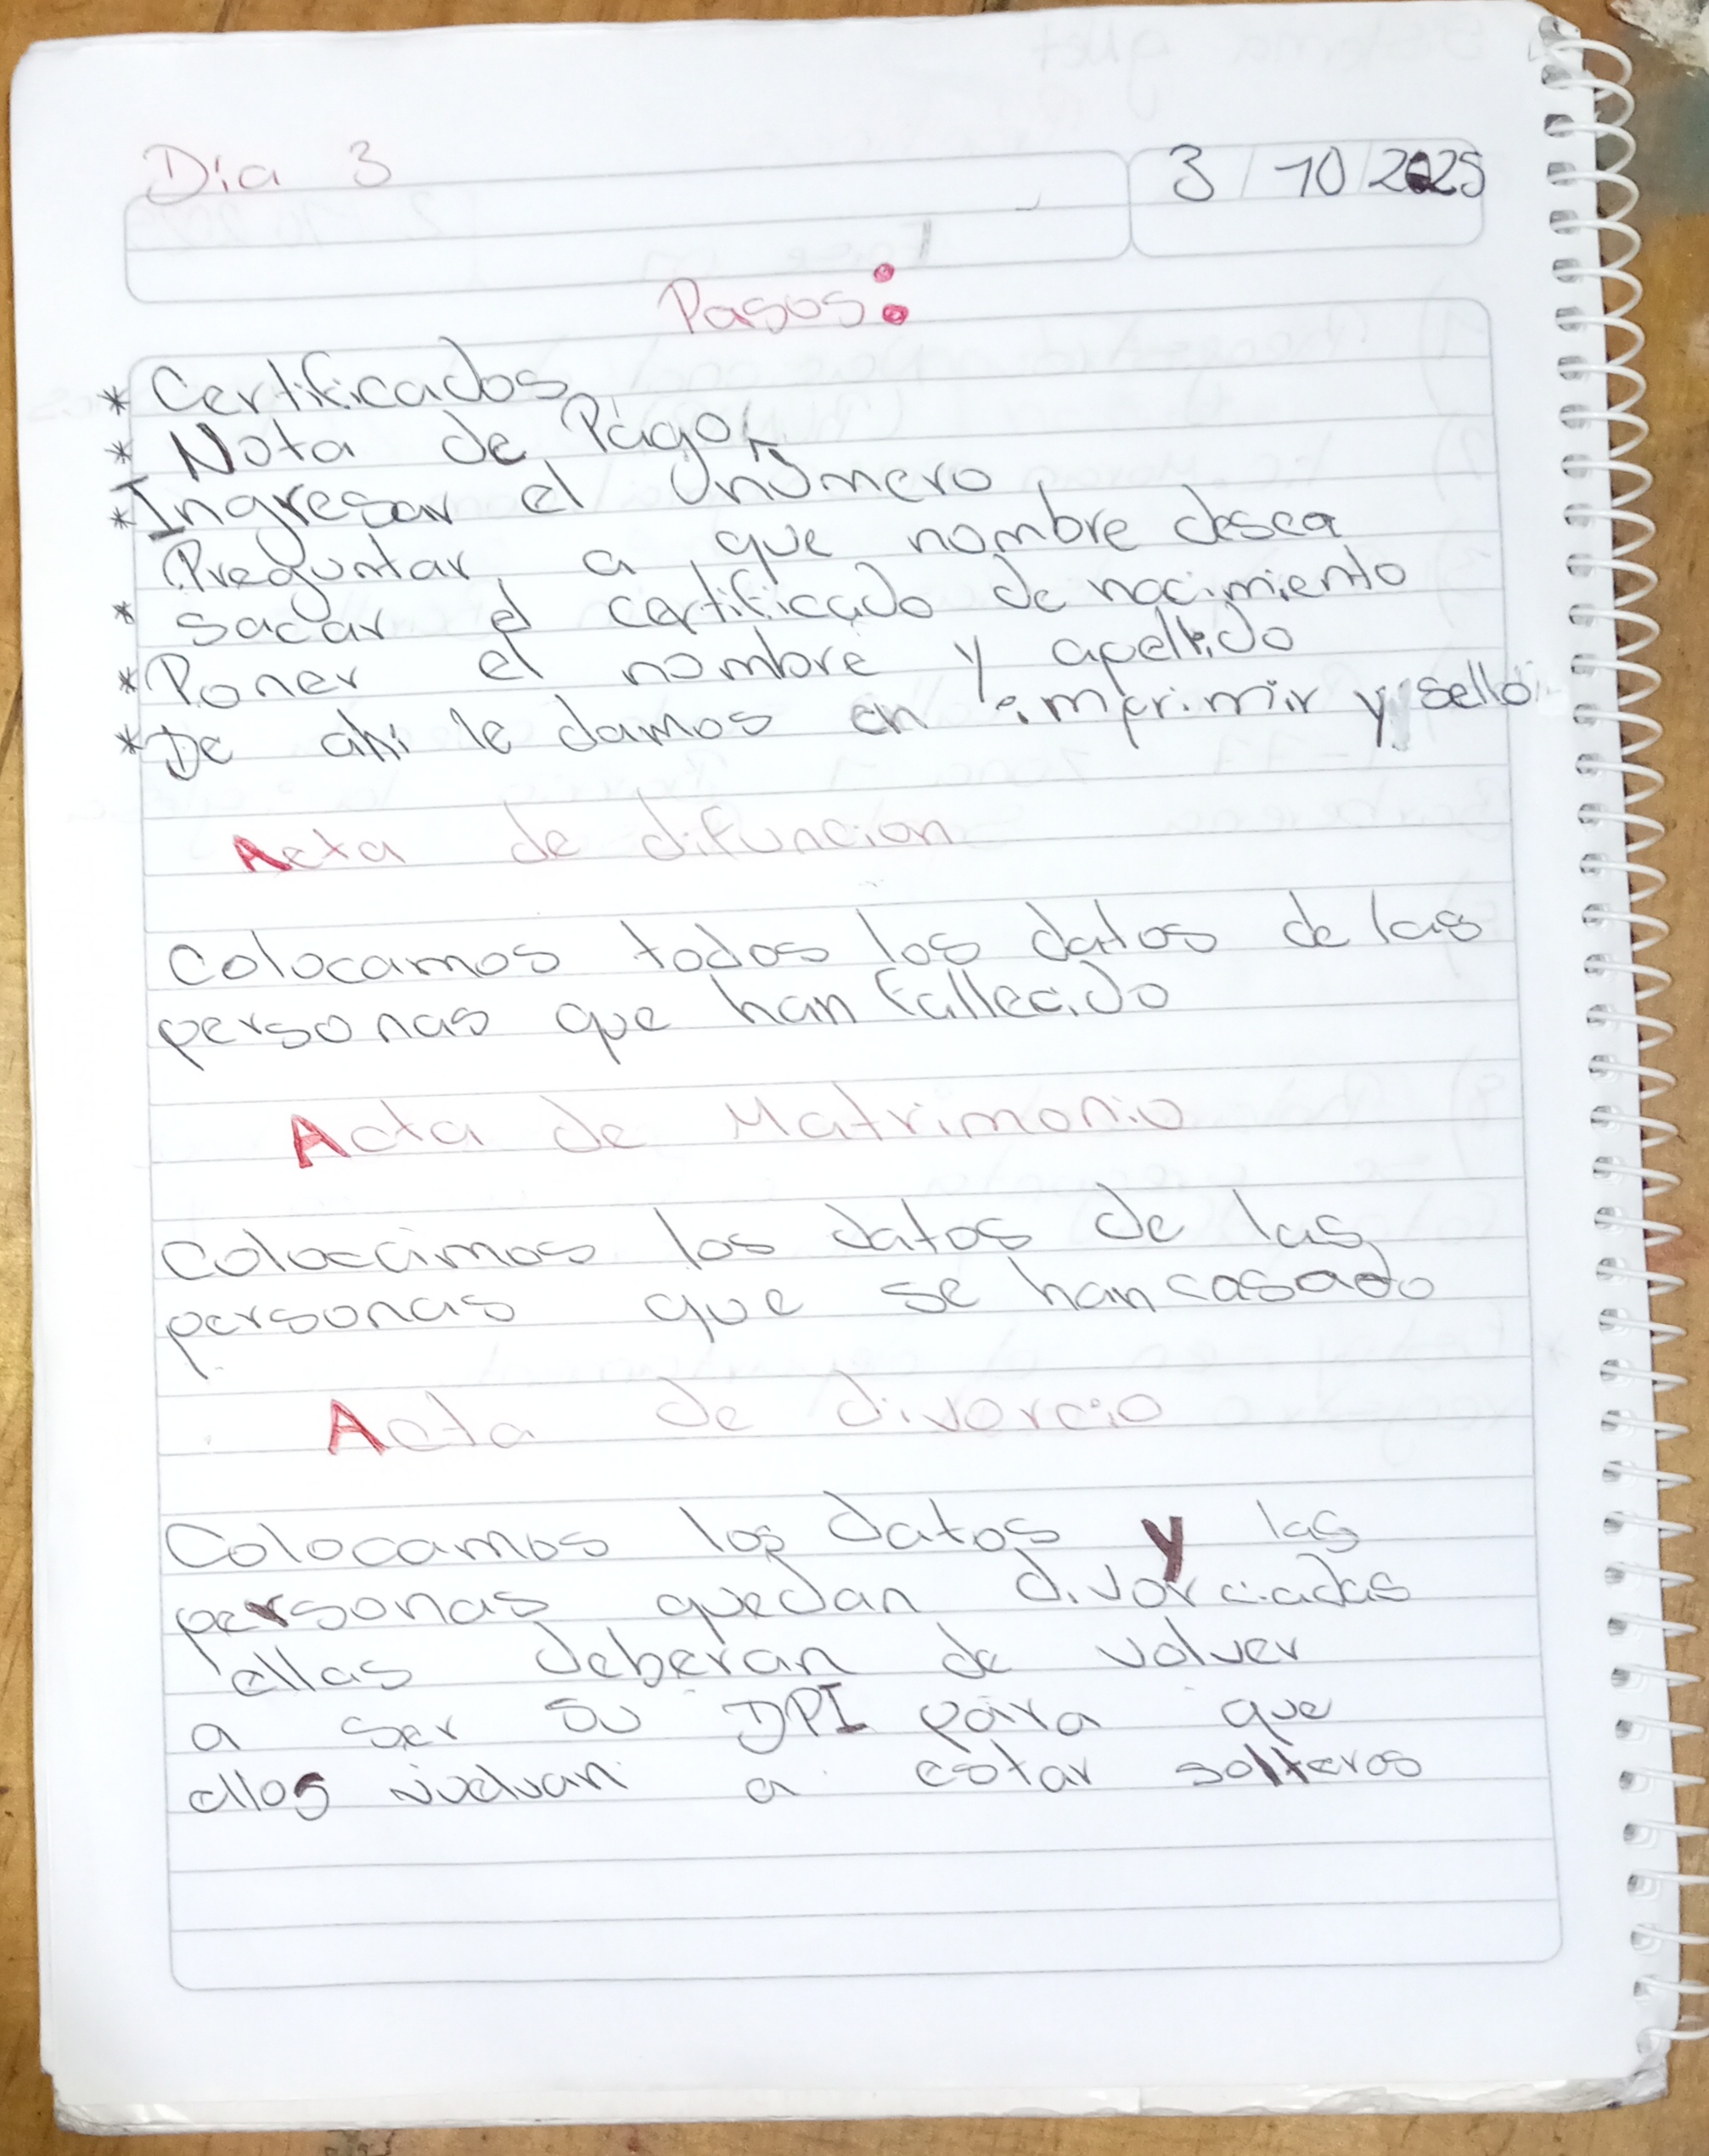 Dia 3
3 / 10 / 2025
Pasos:
* Certificados
* Nota de Pago
* Ingresar el número
Preguntar a que nombre desea
* sacar el certificado de nacimiento
* Poner el nombre y apellido
* De ahi le damos en imprimir y sello
Acta de difuncion
Colocamos todos los datos de las
personas que han fallecido
Acta de Matrimonio
Colocamos los datos de las
personas que se han casado
Acta de divorcio
Colocamos los datos y las
personas quedan divorciadas
ellas deberan de volver
a ser su DPI para que
ellos vuelvan a estar solteros